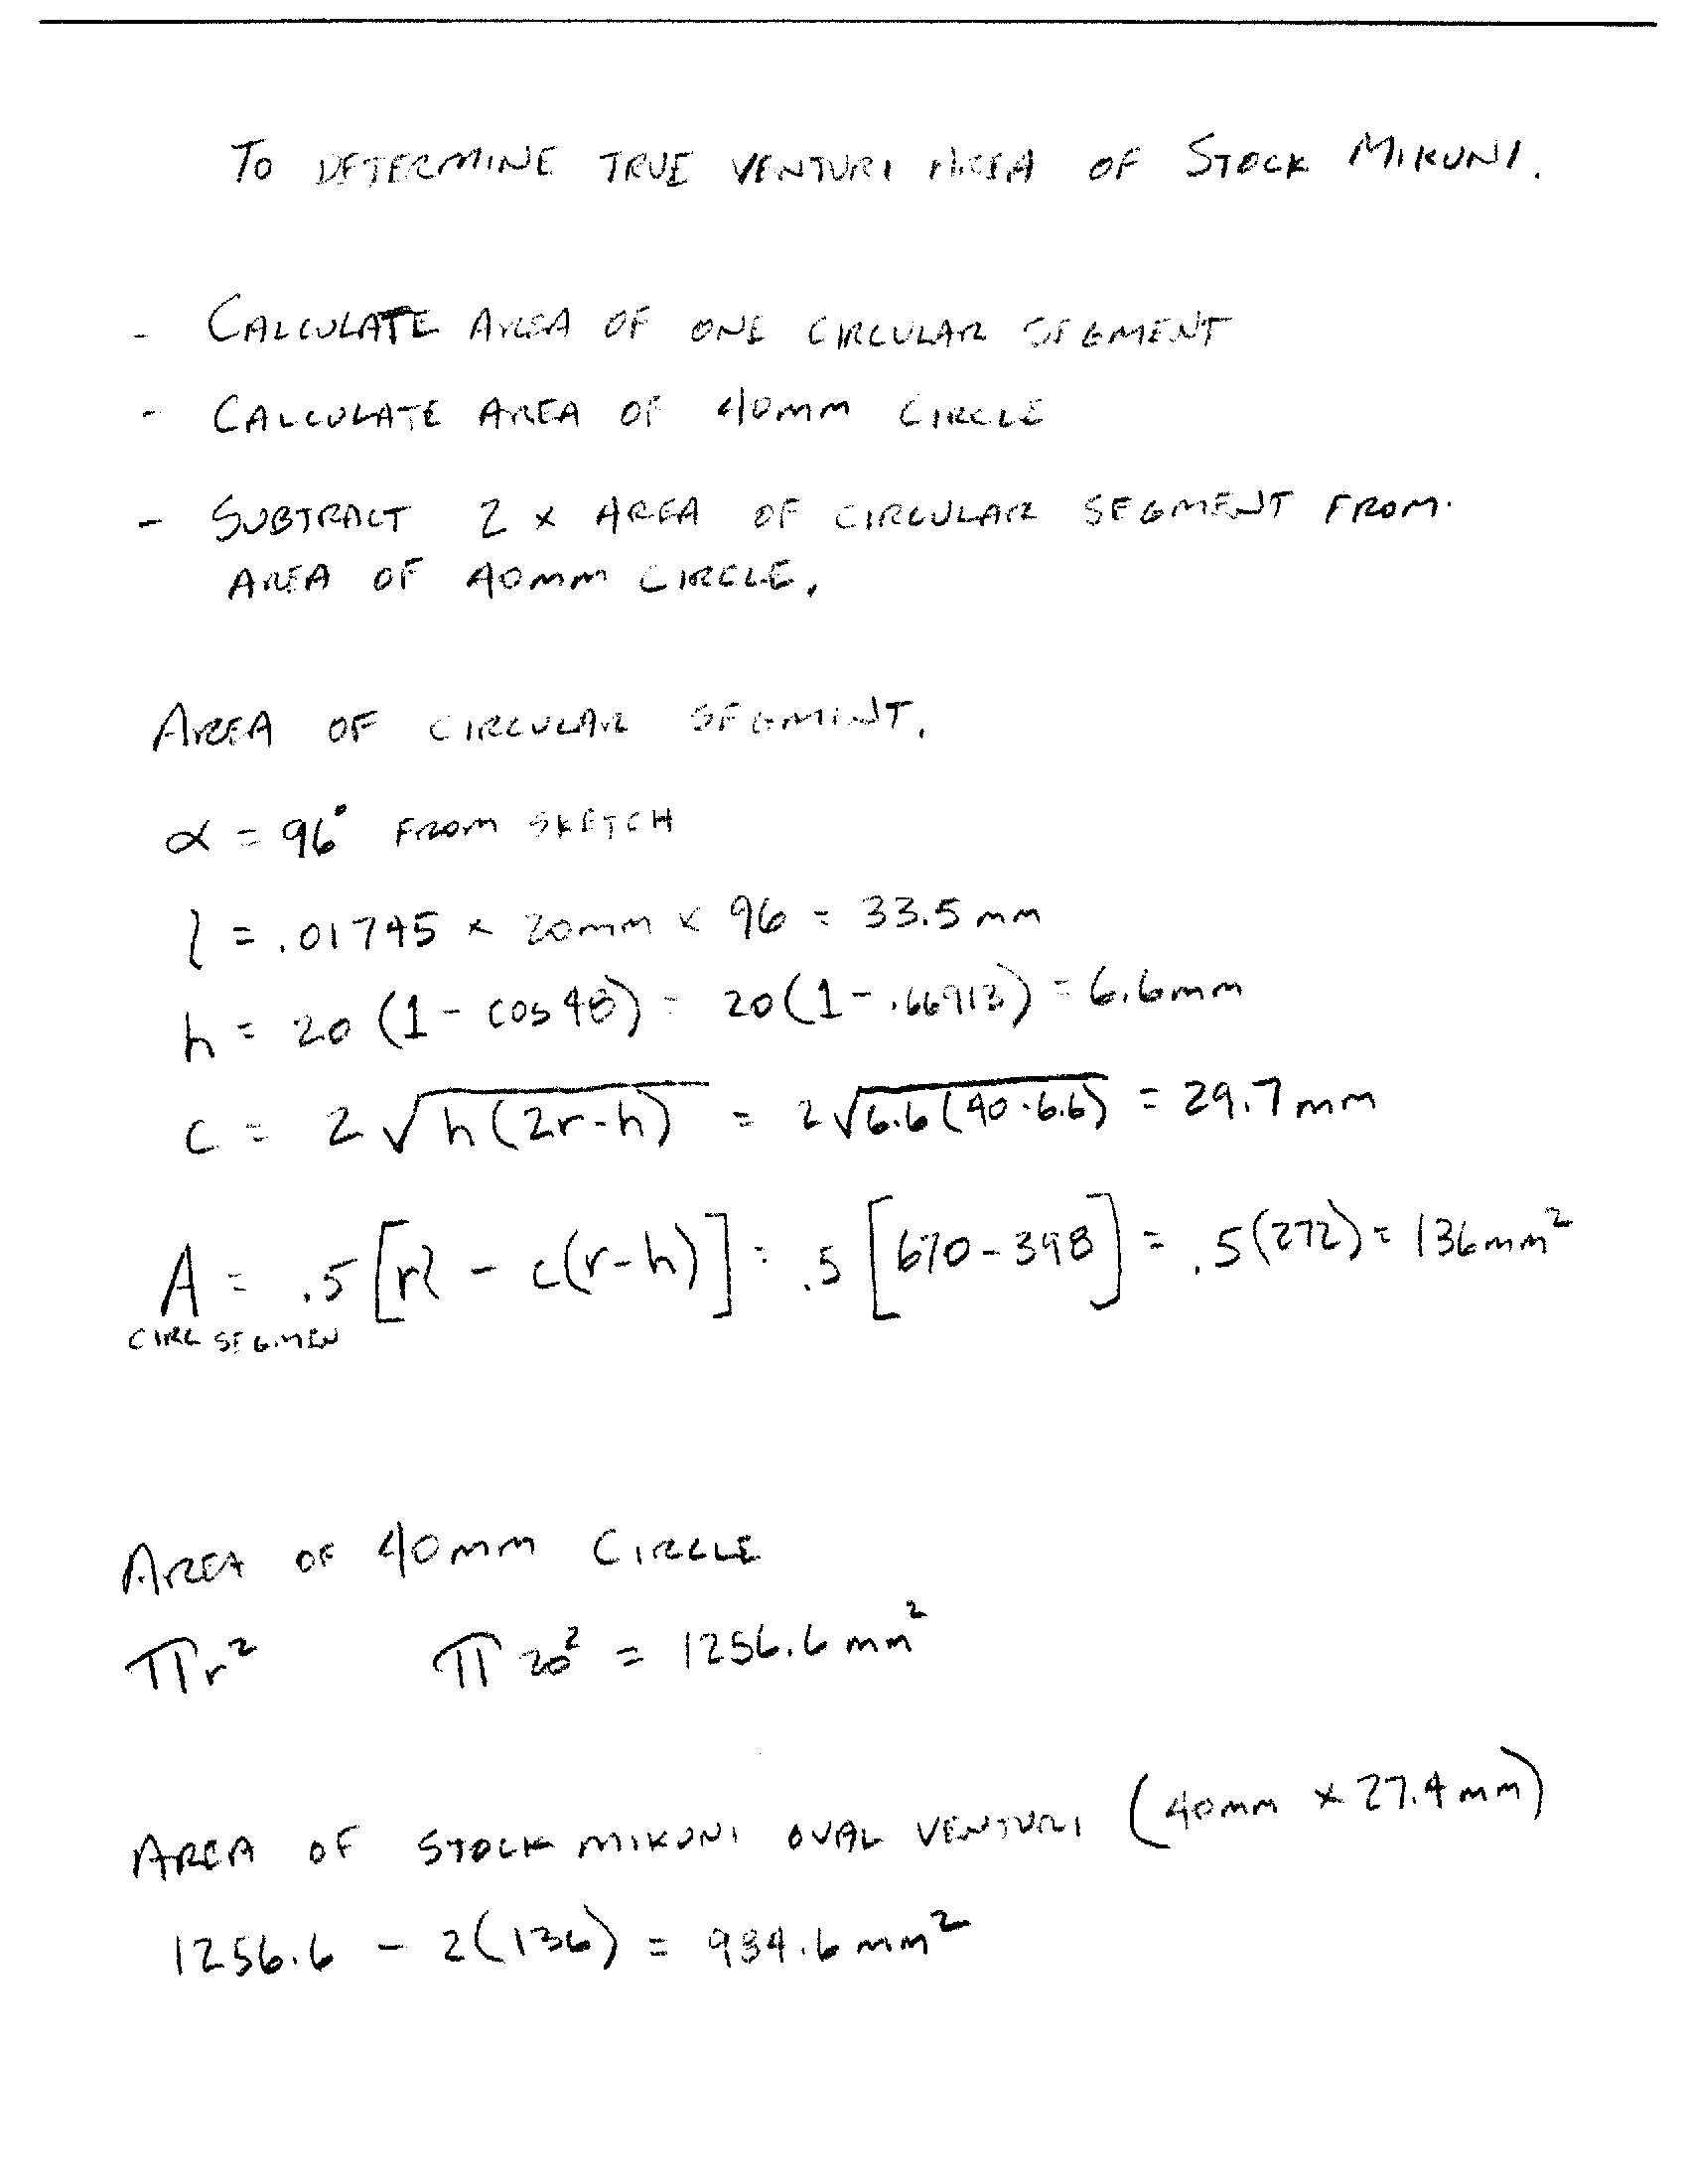 TO DETERMINE TRUE VENTURI AREA OF STOCK MIKUNI.
- CALCULATE AREA OF ONE CIRCULAR SEGMENT
- CALCULATE AREA OF 40mm CIRCLE
- SUBTRACT 2 x AREA OF CIRCULAR SEGMENT FROM
AREA OF 40mm CIRCLE.
AREA OF CIRCULAR SEGMENT.
α = 96° FROM SKETCH
l = .01745 x 20mm x 96 = 33.5 mm
h = 20 (1 - cos 48) = 20 (1 - .66913) = 6.6mm
c = 2√h(2r-h) = 2√6.6(40-6.6) = 29.7 mm
A = .5 [rl - c(r-h)] = .5 [670 - 398] = .5 (272) = 136mm²
CIRC SEGMEN
AREA OF 40mm CIRCLE
πr² π 20² = 1256.6 mm²
AREA OF STOCK MIKUNI OVAL VENTURI (40mm x 27.4mm)
1256.6 - 2(136) = 984.6 mm²